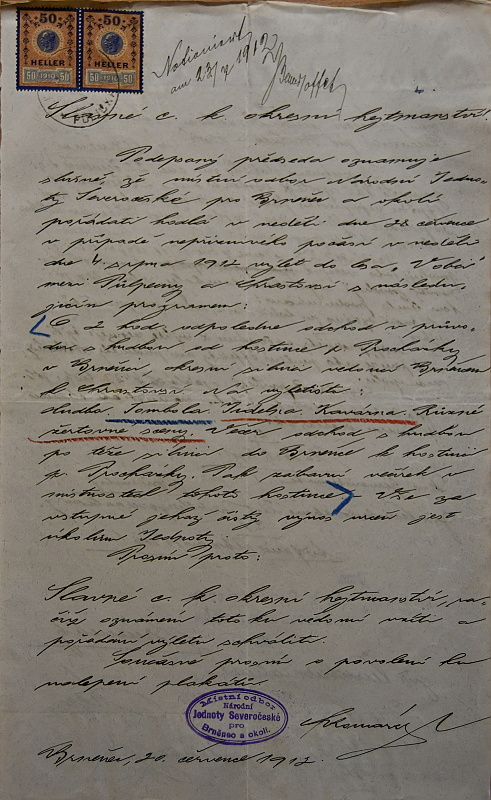 50 50
HELLER HELLER
50 1910 50 50 1910 50
am 23/7 1912
Slavné c. k. okresní hejtmanství!
Podepsaný předseda oznamuje
slušně, že místní odbor Národní Jedno-
ty Severočeské pro Brněnec a okolí
pořádati hodlá v neděli dne 28. července
v případě nepříznivého počasí v neděli
dne 4. srpna 1912 výlet do lesa
mezi Půlpecny a Chrastovou s následu-
jícím programem:
O 2 hod. odpoledne odchod v průvo-
du s hudbou od hostince p. Procházky
v Brněnci, okresní silnicí vedoucí Brněncem
k Chrastovsi. Na výletišti:
hudba, Tombola, Střelnice, Kavárna, Různé
žertovné scény. Večer odchod s hudbou
po téže silnici do Brněnce k hostinci
p. Procházky. Pak zábavní večírek v
místnostech tohoto hostince. Vše za
vstupné jehož čistý výnos určen jest
úkolům Jednoty.
Prosím proto:
Slavné c. k. okresní hejtmanství, ra-
čiž oznámení toto ku vědomí vzíti a
pořádání výletu schváliti.
Současně prosím o povolení ku
nalepení plakátů.
Místní odbor
Národní
Jednoty Severočeské
pro
Brněnec a okolí.
Brněnec, 20. července 1912.